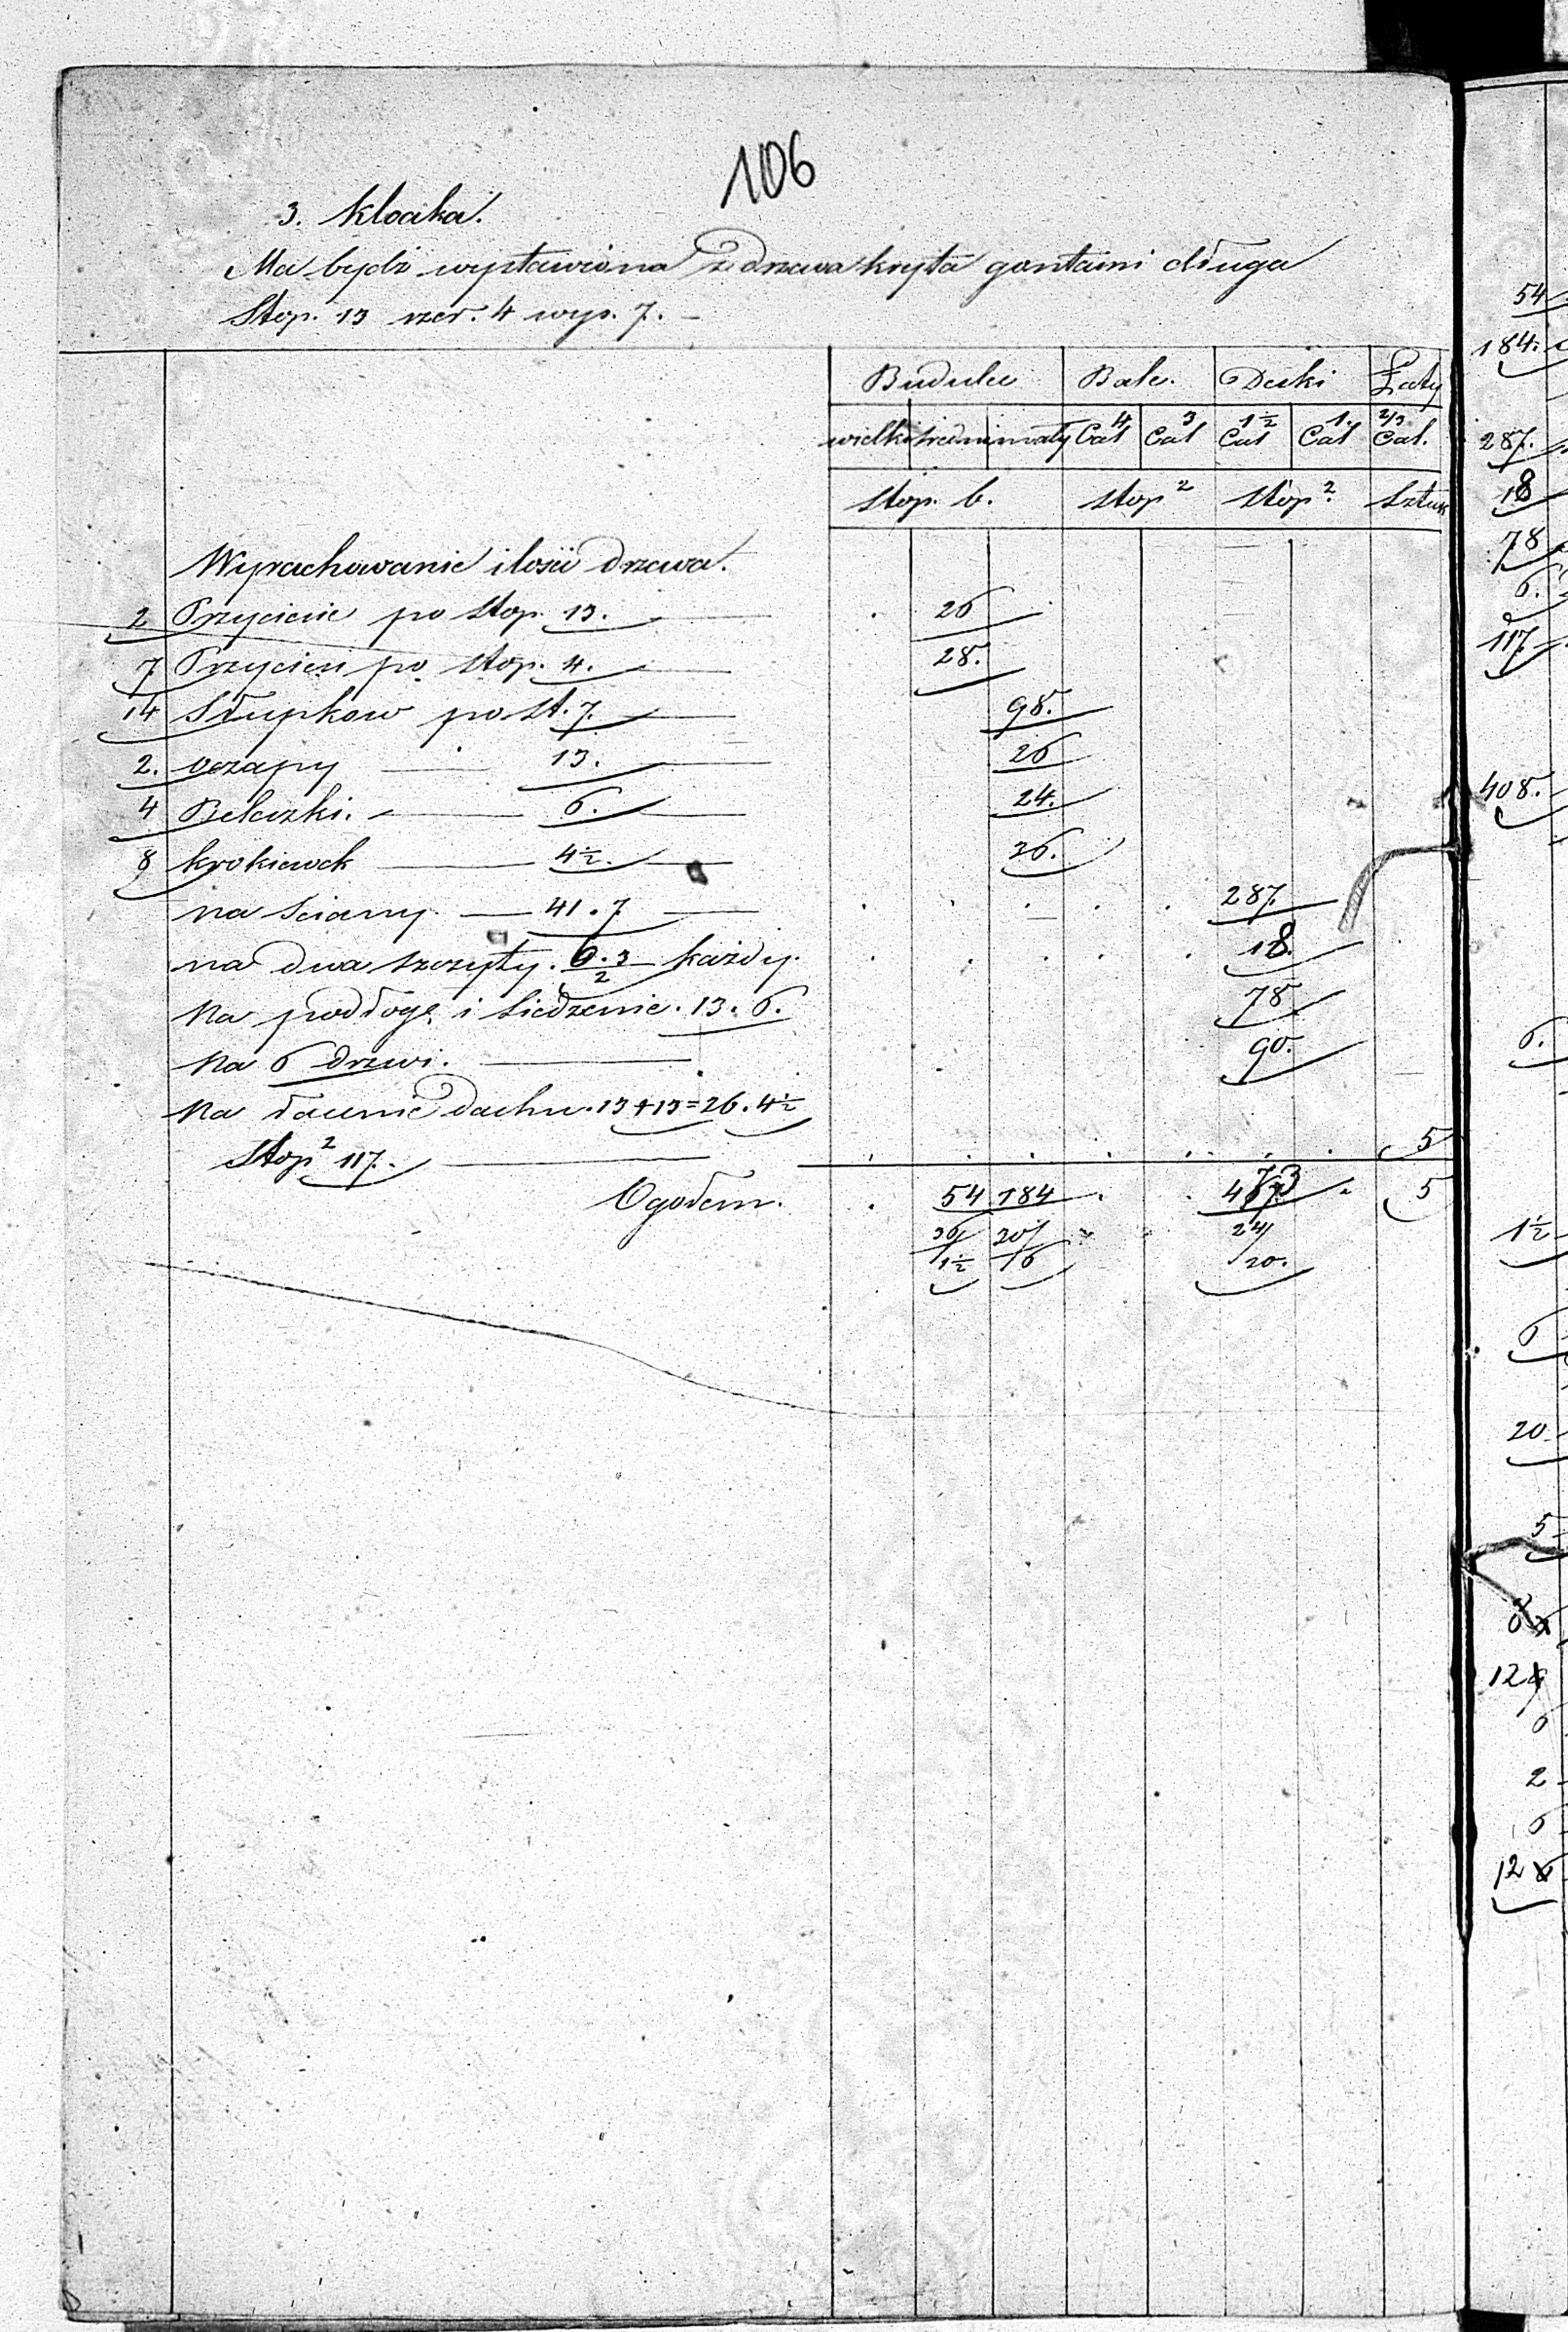 106
3. Kloaka.
Ma bydź wystawiona z drzewa kryta gontami długa
Stop. 13 szer. 4 wys. 7. –
Budulec Bale. Deski Łaty
wielki średni mały 4 Cal 3 Cal 1½ Cal 1. Cal 2/3 Cal.
Stop. b. stop² stop² Sztuk
Wyrachowanie ilości drzewa.
2 Przyciesie po stop. 13. 26
7 Przyciesi po stop. 4. 28.
14 Słupkow po st. 7. 98.
2. oczapy 13. 26
4 Beleczki. 6. 24.
8 krokiewek 4½. 36.
na ściany 41.7 287.
na dwa szczyty. 6.3/2 każdy. 18.
Na podłogę i siedzenie. 13. 6. 78
Na 6 drzwi. 90.
Na łacenie dachu. 13+13=26. 4½
Stop² 117. 5
Ogołem. 54 184 473 5
36/1½ 30/6 24/20.
54
184.
287.
18
78
6.
117
408.
6.
1½
6
20
5
12
6
2
6
12